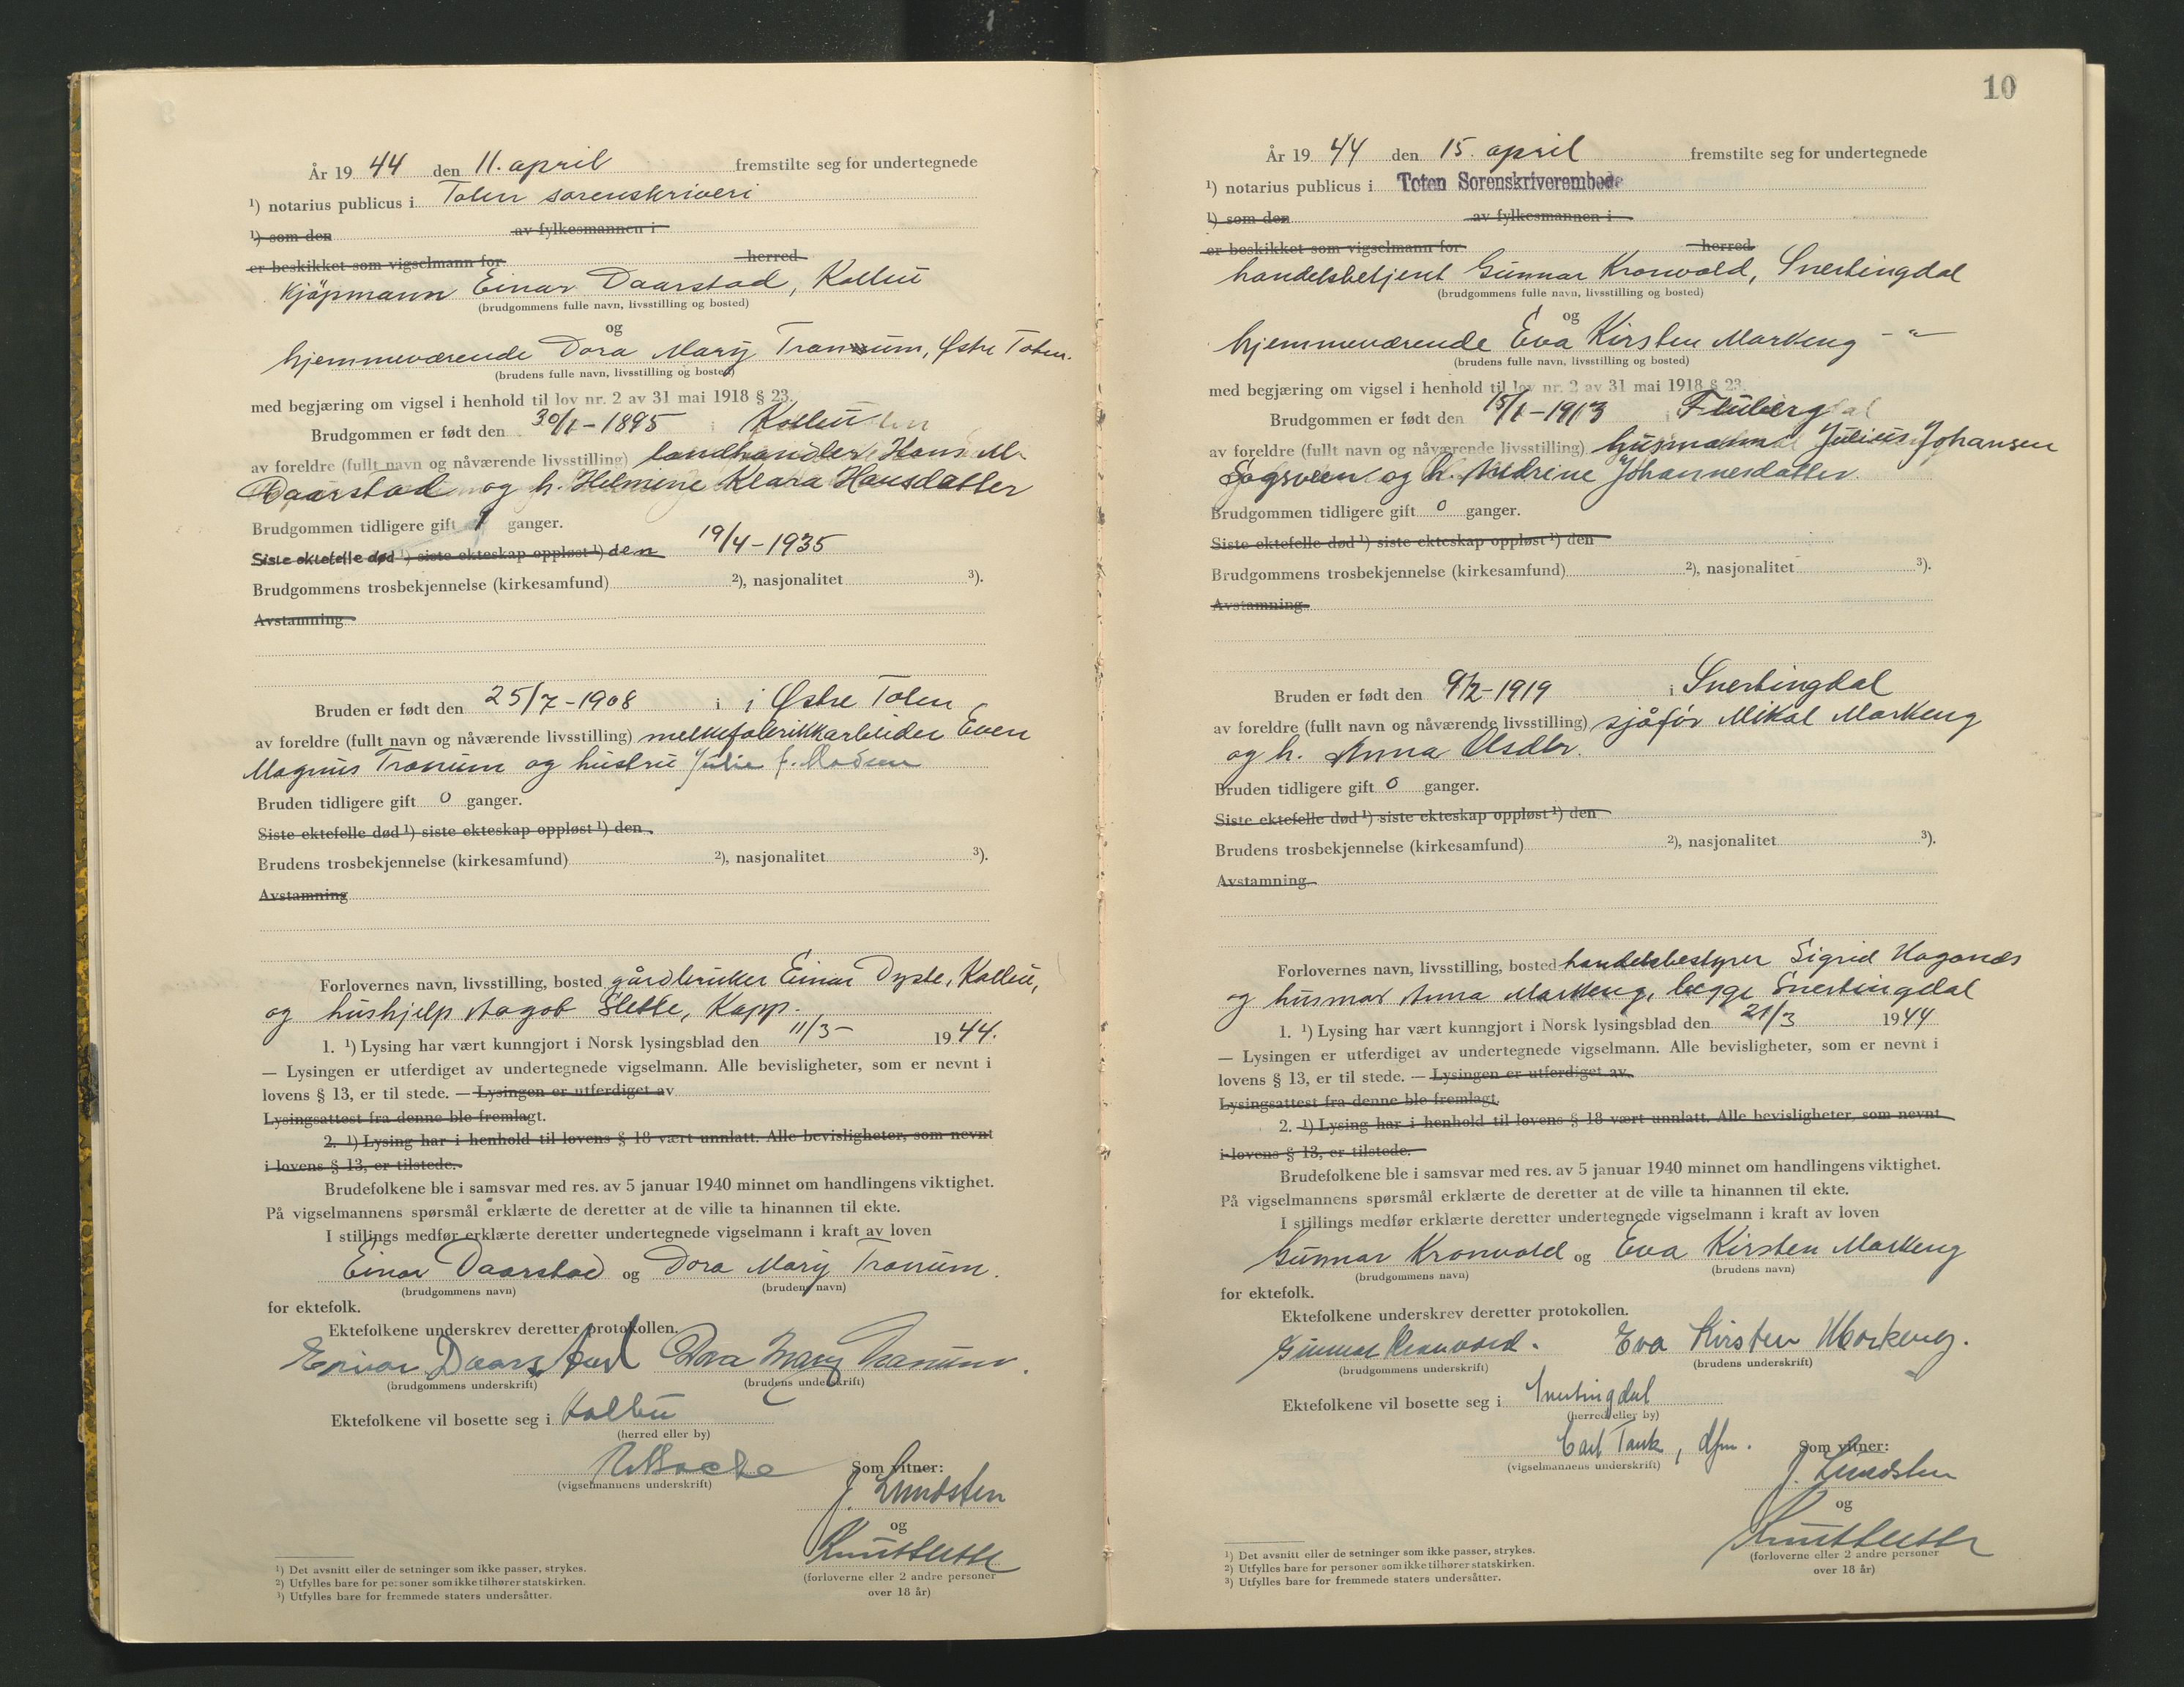 År 19 44 den 11. april fremstilte seg for undertegnede
¹) notarius publicus i Toten sorenskriveri
¹) som den av fylkesmannen i
er beskikket som vigselmann for herred
Kjøpmann Einar Daarstad, Kolbu
(brudgommens fulle navn, livsstilling og bosted)
og
hjemmeværende Dora Mary Tranum, Østre Toten.
(brudens fulle navn, livsstilling og bosted)
med begjæring om vigsel i henhold til lov nr. 2 av 31 mai 1918 § 23.
Brudgommen er født den 30/1-1895 i Kolbu
av foreldre (fullt navn og nåværende livsstilling) landhandler Hans M.
Daarstad og h. Helmine Klara Hansdatter
Brudgommen tidligere gift 1 ganger.
Siste ektefelle død ¹) siste ekteskap oppløst ¹) den 19/4-1935
Brudgommens trosbekjennelse (kirkesamfund) ²), nasjonalitet ³).
Avstamning
Bruden er født den 25/7-1908 i i Østre Toten
av foreldre (fullt navn og nåværende livsstilling) melkefabrikkarbeider Even
Magnus Tranum og hustru Julie f. Madsen
Bruden tidligere gift 0 ganger.
Siste ektefelle død ¹) siste ekteskap oppløst ¹) den
Brudens trosbekjennelse (kirkesamfund) ²), nasjonalitet ³).
Avstamning
Forlovernes navn, livsstilling, bosted gårdbruker Einar Dyste, Kolbu,
og hushjelp Aagot Slette, Kapp.
1. ¹) Lysing har vært kunngjort i Norsk lysingsblad den 11/3- 1944.
— Lysingen er utferdiget av undertegnede vigselmann. Alle bevisligheter, som er nevnt i
lovens § 13, er til stede. — Lysingen er utferdiget av
Lysingsattest fra denne ble fremlagt.
2. ¹) Lysing har i henhold til lovens § 18 vært unnlatt. Alle bevisligheter, som nevnt
i lovens § 13, er tilstede.
Brudefolkene ble i samsvar med res. av 5 januar 1940 minnet om handlingens viktighet.
På vigselmannens spørsmål erklærte de deretter at de ville ta hinannen til ekte.
I stillings medfør erklærte deretter undertegnede vigselmann i kraft av loven
Einar Daarstad og Dora Mary Tranum.
(brudgommens navn) (brudens navn)
for ektefolk.
Ektefolkene underskrev deretter protokollen.
Einar Daarstad Dora Mary Tranum.
(brudgommens underskrift) (brudens underskrift)
Ektefolkene vil bosette seg i Kolbu
(herred eller by)
Som vitner:
(vigselmannens underskrift)
J. Lundsten
og
(forloverne eller 2 andre personer
over 18 år)
¹) Det avsnitt eller de setninger som ikke passer, strykes.
²) Utfylles bare for personer som ikke tilhører statskirken.
³) Utfylles bare for fremmede staters undersåtter.
10
År 19 44 den 15. april fremstilte seg for undertegnede
¹) notarius publicus i Toten Sorenskriverembede
¹) som den av fylkesmannen i
er beskikket som vigselmann for herred
handelsbetjent Gunnar Kronvold, Snertingdal
(brudgommens fulle navn, livsstilling og bosted)
og
hjemmeværende Eva Kirsten Markeng -"-
(brudens fulle navn, livsstilling og bosted)
med begjæring om vigsel i henhold til lov nr. 2 av 31 mai 1918 § 23.
Brudgommen er født den 15/1-1913 i Fluberg
av foreldre (fullt navn og nåværende livsstilling) husmann Julius Johansen
Sogsveen og h. Andrine Johannesdatter.
Brudgommen tidligere gift 0 ganger.
Siste ektefelle død ¹) siste ekteskap oppløst ¹) den
Brudgommens trosbekjennelse (kirkesamfund) ²), nasjonalitet ³).
Avstamning
Bruden er født den 9/2-1919 i Snertingdal
av foreldre (fullt navn og nåværende livsstilling) sjåfør Mikal Markeng
og h. Anna Olsdtr.
Bruden tidligere gift 0 ganger.
Siste ektefelle død ¹) siste ekteskap oppløst ¹) den
Brudens trosbekjennelse (kirkesamfund) ²), nasjonalitet ³).
Avstamning
Forlovernes navn, livsstilling, bosted handelsbestyrer Sigrid Haganæs
og husmor Anna Markeng, begge Snertingdal
1. ¹) Lysing har vært kunngjort i Norsk lysingsblad den 21/3 1944
— Lysingen er utferdiget av undertegnede vigselmann. Alle bevisligheter, som er nevnt i
lovens § 13, er til stede. — Lysingen er utferdiget av
Lysingsattest fra denne ble fremlagt.
2. ¹) Lysing har i henhold til lovens § 18 vært unnlatt. Alle bevisligheter, som nevnt
i lovens § 13, er tilstede.
Brudefolkene ble i samsvar med res. av 5 januar 1940 minnet om handlingens viktighet.
På vigselmannens spørsmål erklærte de deretter at de ville ta hinannen til ekte.
I stillings medfør erklærte deretter undertegnede vigselmann i kraft av loven
Gunnar Kronvold og Eva Kirsten Markeng
(brudgommens navn) (brudens navn)
for ektefolk.
Ektefolkene underskrev deretter protokollen.
Gunnar Kronvold. Eva Kirsten Markeng.
(brudgommens underskrift) (brudens underskrift)
Ektefolkene vil bosette seg i Snertingdal
(herred eller by)
Carl Tank, dfm. Som vitner:
(vigselmannens underskrift)
J. Lundsten
og
(forloverne eller 2 andre personer
over 18 år)
¹) Det avsnitt eller de setninger som ikke passer, strykes.
²) Utfylles bare for personer som ikke tilhører statskirken.
³) Utfylles bare for fremmede staters undersåtter.